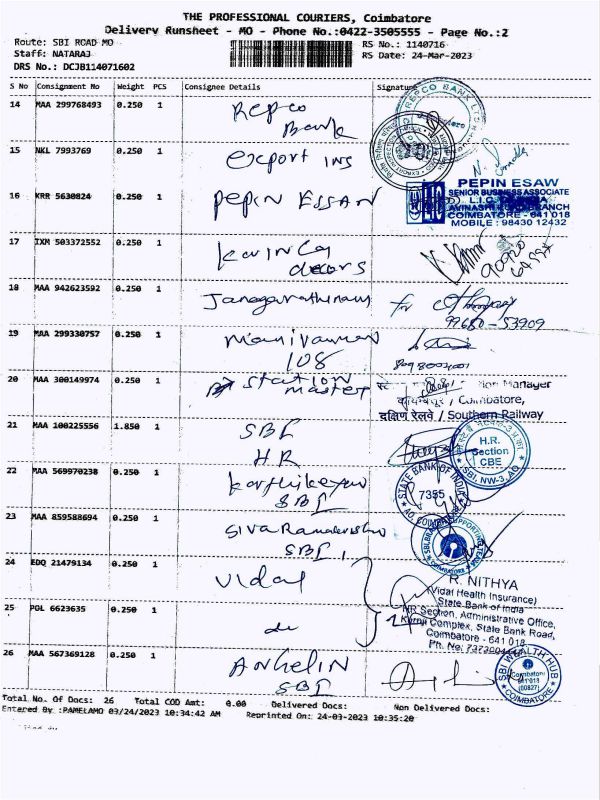 THE PROFESSIONAL COURIERS, Coimbatore
Delivery Runsheet - MO - Phone No.:0422-3505555 - Page No.:2
Route: SBI ROAD MO
RS No.: 1140716
Staff: NATARAJ
RS Date: 24-Mar-2023
DRS No.: DCJB114071602
S No Consignment No Weight PCS Consignee Details Signature
14 MAA 299768493 0.250 1 Repco
Bank
REPCO BANK LTD
15 NKL 7993769 0.250 1 export ins
16 KRR 5630824 0.250 1 PEPIN ESSAN
PEPIN ESAW
SENIOR BUSINESS ASSOCIATE
L.I.C
AVINASHI BRANCH
COIMBATORE - 641 018
MOBILE : 98430 12432
17 IXM 503372552 0.250 1 kovinly
decors
90920
18 MAA 942623592 0.250 1 Janagarathinam for
99680-53909
19 MAA 299330757 0.250 1 manivannan
108
20 MAA 300149974 0.250 1 station
master
Station Manager
कोयम्बत्तूर / Coimbatore,
दक्षिण रेलवे / Southern Railway
21 MAA 100225556 1.850 1 SBI
HR
H.R.
Section
CBE
SBI, NW-3, AO
22 MAA 569970238 0.250 1 karthikeyan
SBI
STATE BANK OF INDIA
7355
AO, COIMBATORE
23 MAA 859588694 0.250 1 Siva Ramakrishn
SBI
COIMBATORE
24 EDQ 21479134 0.250 1 vidal
R. NITHYA
(Vidal Health Insurance)
State Bank of India
HR Section, Administrative Office,
25 POL 6623635 0.250 1 do
Complex, State Bank Road,
Coimbatore - 641 018
26 MAA 567369128 0.250 1 ANGELIN
SBI
SBI WEALTH HUB
Coimbatore
641 018
(00827)
COIMBATORE
Total No. Of Docs: 26 Total COD Amt: 0.00 Delivered Docs: Non Delivered Docs:
Entered By :PAMELAMO 03/24/2023 10:34:42 AM Reprinted On: 24-03-2023 10:35:20